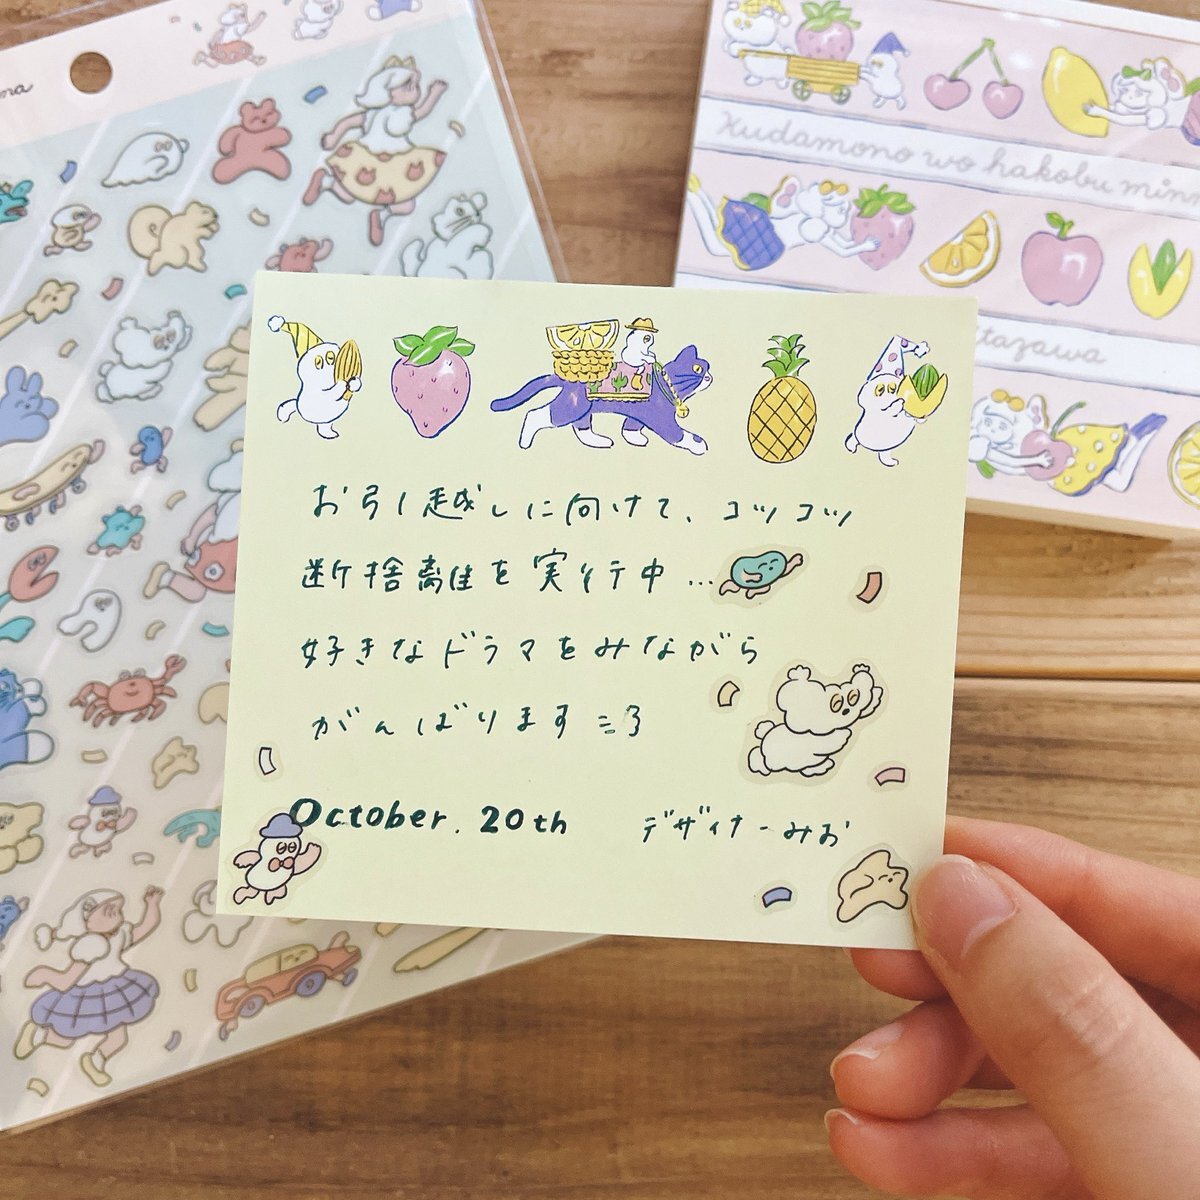 ma
Kudamono wo hakobu min
tazawa
お引っ越しに向けて、コツコツ
断捨離を実行中…
好きなドラマをみながら
がんばります
October. 20th
デザイナーみお